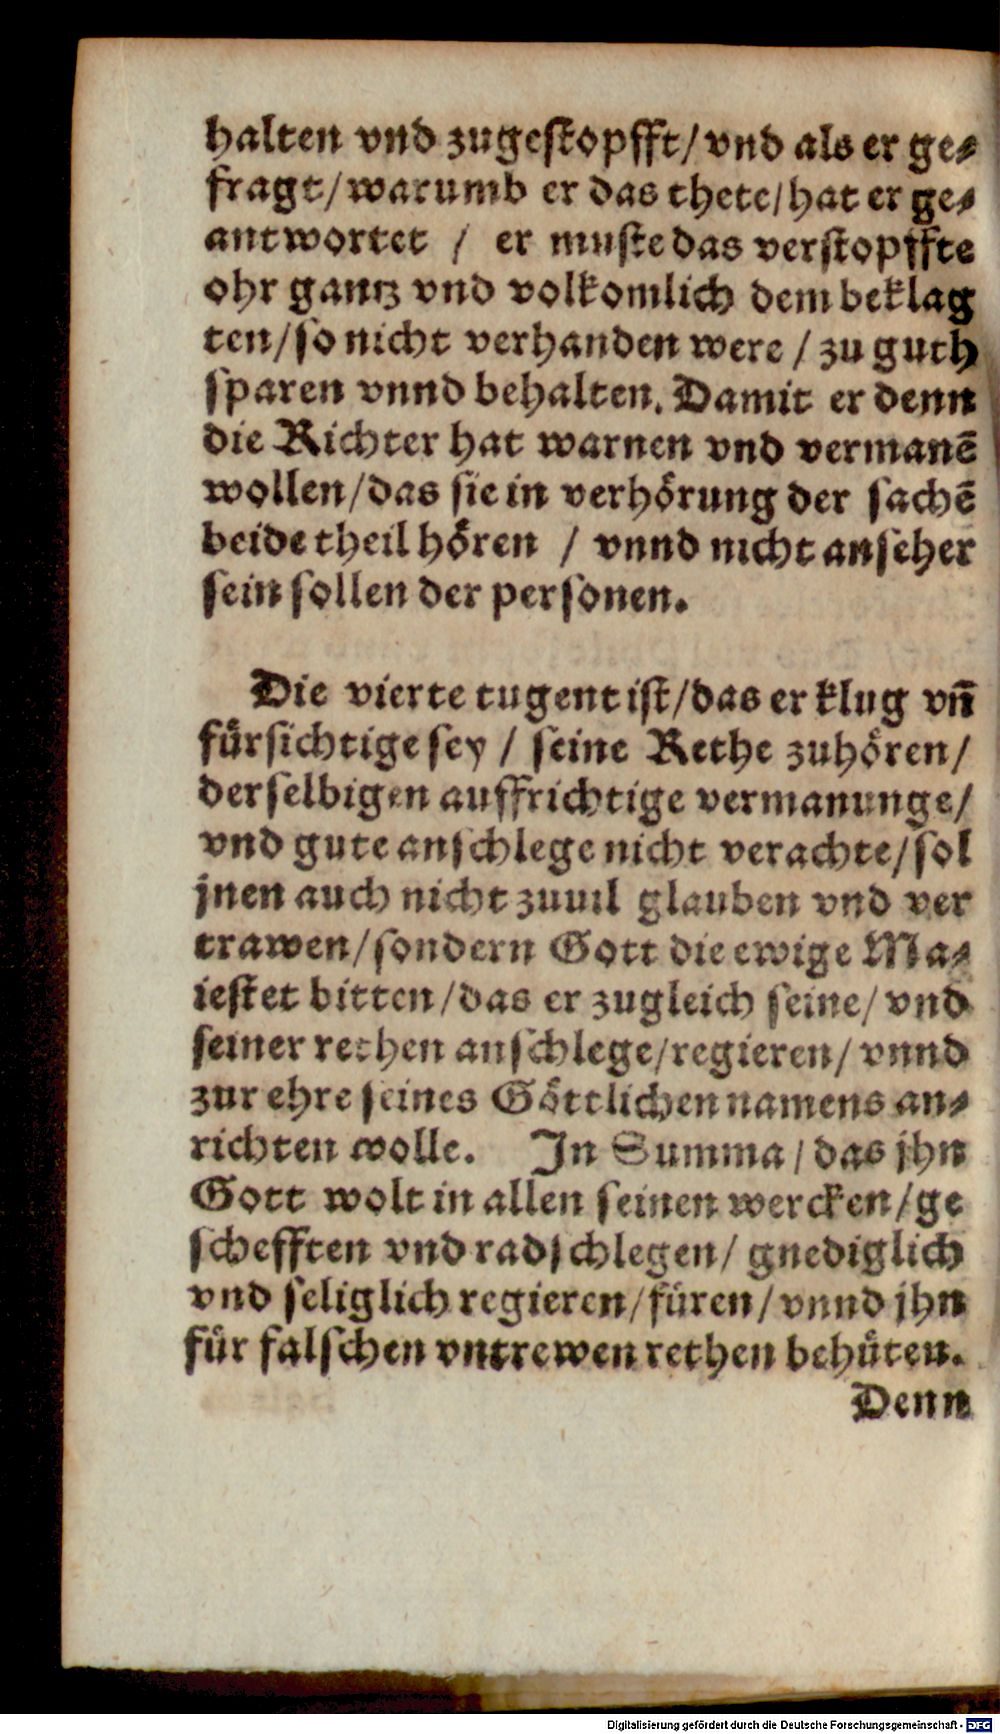 halten vnd zugestopfft/ vnd als er ge⸗
fragt/ warumb er das thete/ hat er ge⸗
antwortet / er muste das verstopffte
ohr gantz vnd volkomlich dem beklag
ten/ so nicht verhanden were / zu guth
sparen vnnd behalten. Damit er denn
die Richter hat warnen vnd vermanē
wollen/ das sie in verhörung der sachē
beide theil hören / vnnd nicht anseher
sein sollen der personen.
Die vierte tugent ist/ das er klug vn̄
fürsichtige sey / seine Rethe zuhören/
derselbigen auffrichtige vermanunge/
vnd gute anschlege nicht verachte/ sol
jnen auch nicht zuuil glauben vnd ver
trawen/ sondern Gott die ewige Ma⸗
iestet bitten/ das er zugleich seine/ vnd
seiner rethen anschlege/ regieren/ vnnd
zur ehre seines Göttlichen namens an⸗
richten wolle. In Summa/ das jhn
Gott wolt in allen seinen wercken/ ge
schefften vnd radschlegen/ gnediglich
vnd seliglich regieren/ füren/ vnnd jhn
für falschen vntrewen rethen behüten.
Denn
Digitalisierung gefördert durch die Deutsche Forschungsgemeinschaft - DFG